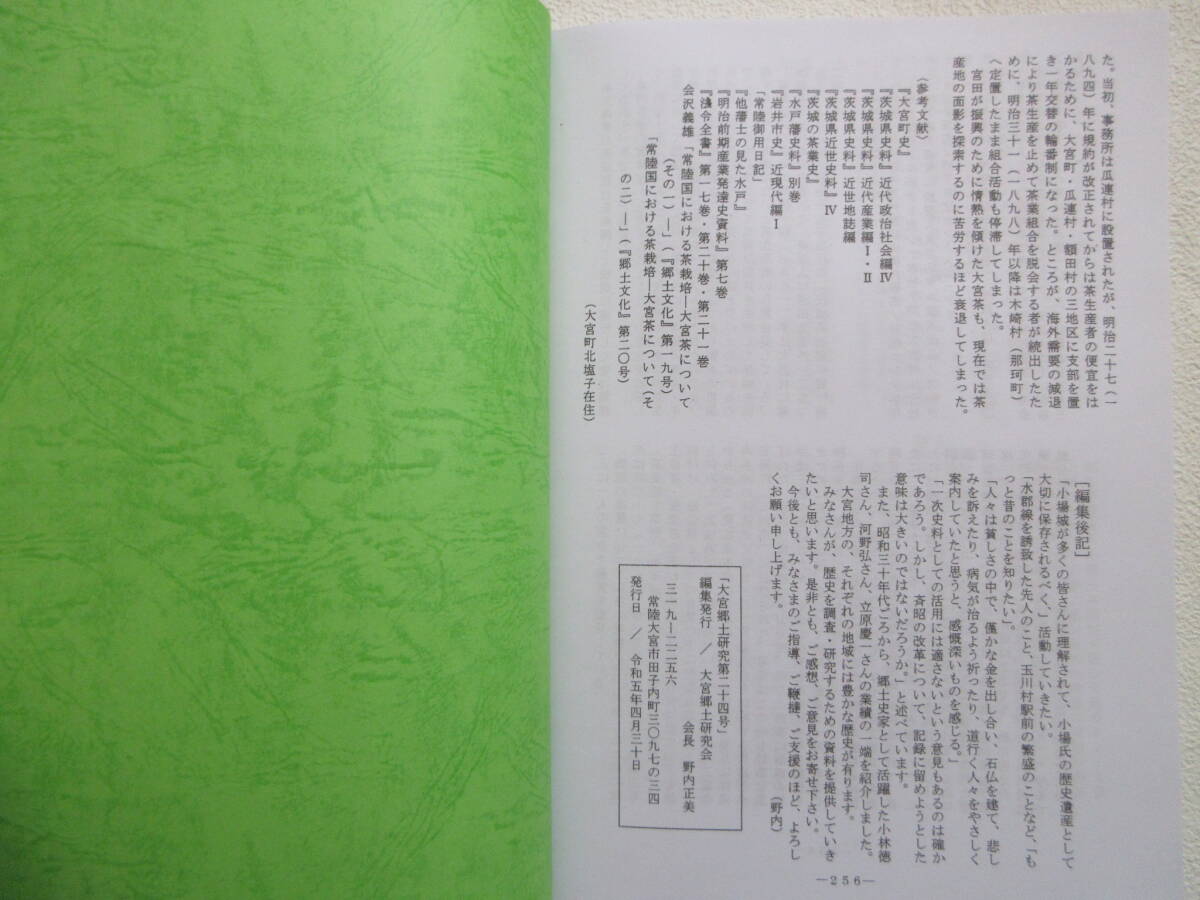 た。当初、事務所は瓜連村に設置されたが、明治二十七(一
八九四)年に規約が改正されてからは茶生産者の便宜をは
かるために、大宮町・瓜連村・額田村の三地区に支部を置
き一年交替の輪番制になった。ところが、海外需要の減退
により茶生産を止めて茶業組合を脱会する者が続出したた
めに、明治三十一(一八九八)年以降は木崎村(那珂町)
へ定置したまま組合活動も停滞してしまった。
宮田が振興のために情熱を傾けた大宮茶も、現在では茶
産地の面影を探索するのに苦労するほど衰退してしまった。
(参考文献)
『大宮町史』
『茨城県史料』近代政治社会編Ⅳ
『茨城県史料』近代産業編Ⅰ・Ⅱ
『茨城県史料』近世地誌編
『茨城県近世史料』Ⅳ
『茨城の茶業史』
『水戸藩史料』別巻
『岩井市史』近現代編Ⅰ
「常陸御用日記」
『他藩士の見た水戸』
『明治前期産業発達史資料』第七巻
『法令全書』第一七巻・第二十巻・第二十一巻
会沢義雄「常陸国における茶栽培―大宮茶について
(その一)―」(『郷土文化』第一九号)
「常陸国における茶栽培―大宮茶について(そ
の二)―」(『郷土文化』第二〇号)
(大宮町北塩子在住)
[編集後記]
「小場城が多くの皆さんに理解されて、小場氏の歴史遺産として
大切に保存されるべく、」活動していきたい。
「水郡線を誘致した先人のこと、玉川村駅前の繁盛のことなど、「も
っと昔のことを知りたい」。
「人々は貧しさの中で、僅かな金を出し合い、石仏を建て、悲し
みを訴えたり、病気が治るよう祈ったり、道行く人々をやさしく
案内していたと思うと、感慨深いものを感じる。」
「一次史料としての活用には適さないという意見もあるのは確か
であろう。しかし、斉昭の改革について、記録に留めようとした
意味は大きいのではないだろうか。」と述べています。
また、昭和三十年代ごろから、郷土史家として活躍した小林徳
司さん、河野弘さん、立原慶一さんの業績の一端を紹介しました。
大宮地方の、それぞれの地域には豊かな歴史が有ります。
みなさんが、歴史を調査・研究するための資料を提供していき
たいと思います。是非とも、ご感想、ご意見をお寄せ下さい。
今後とも、みなさまのご指導、ご鞭撻、ご支援のほど、よろし
くお願い申し上げます。
(野内)
「大宮郷土研究第二十四号」
編集発行 / 大宮郷土研究会
会長 野内正美
三一九―二二五六
常陸大宮市田子内町三〇九七の三四
発行日 / 令和五年四月三十日
―256―